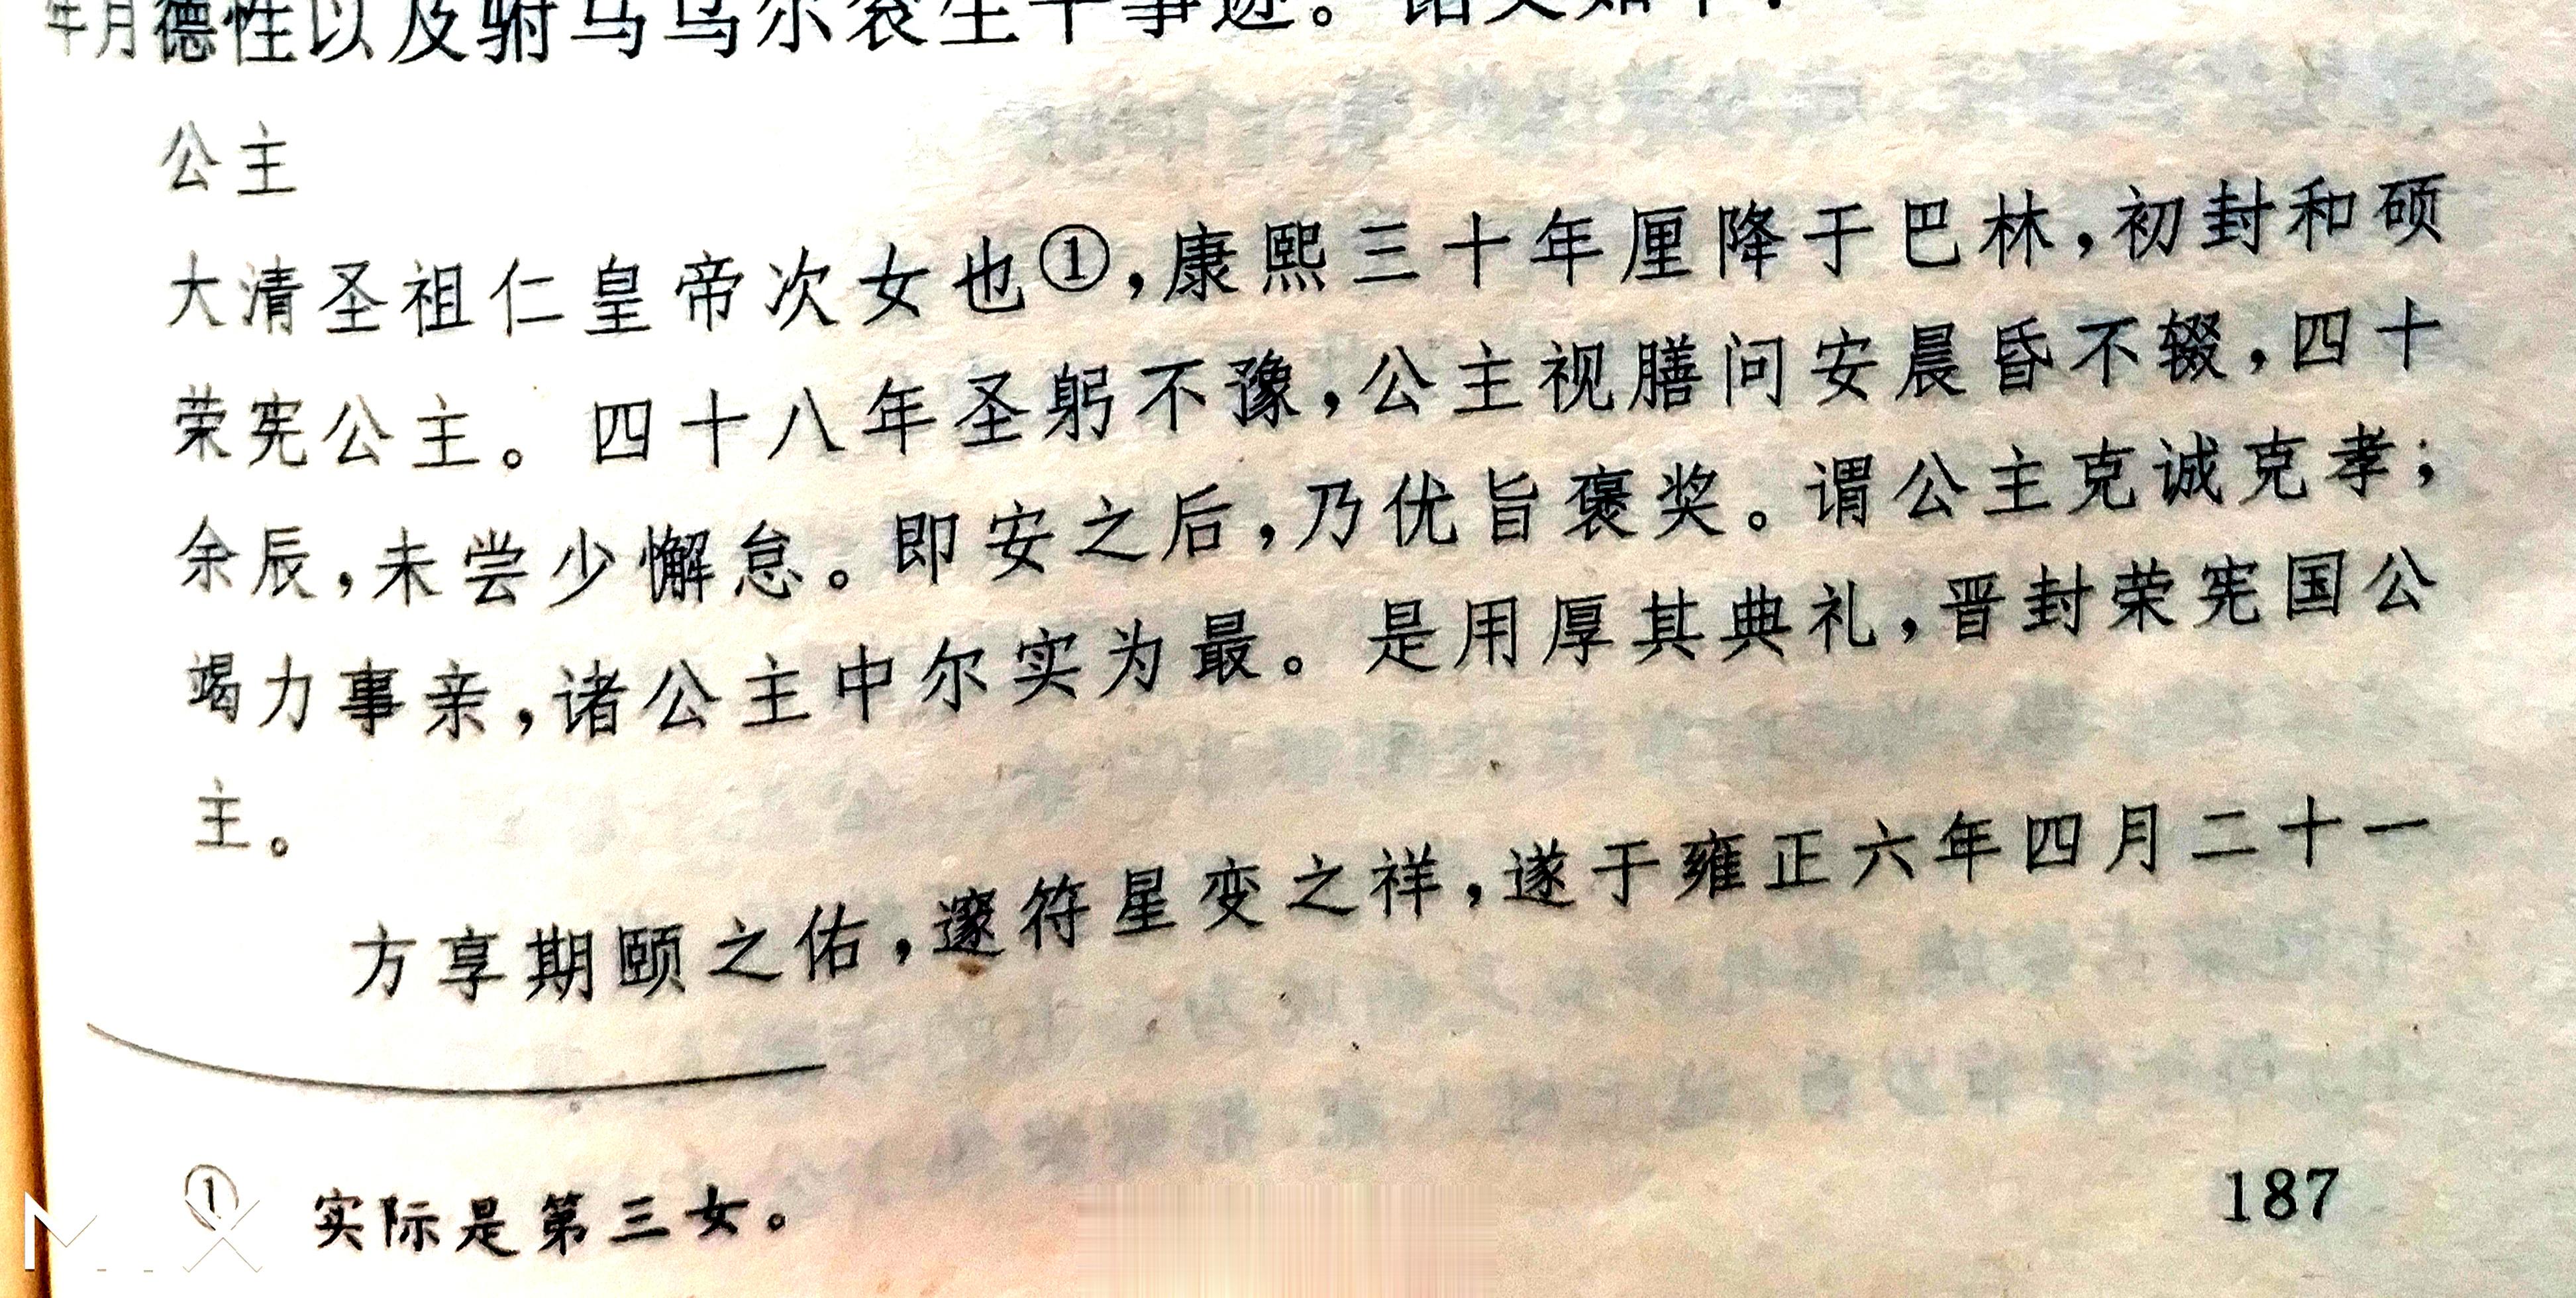 年月德性以及驸马乌尔衮生平事迹。铭文如下：
公主
大清圣祖仁皇帝次女也①，康熙三十年厘降于巴林，初封和硕
荣宪公主。四十八年圣躬不豫，公主视膳问安晨昏不辍，四十
余辰，未尝少懈怠。即安之后，乃优旨褒奖。谓公主克诚克孝；
竭力事亲，诸公主中尔实为最。是用厚其典礼，晋封荣宪国公
主。
方享期颐之佑，邃符星变之祥，遂于雍正六年四月二十一
① 实际是第三女。
187